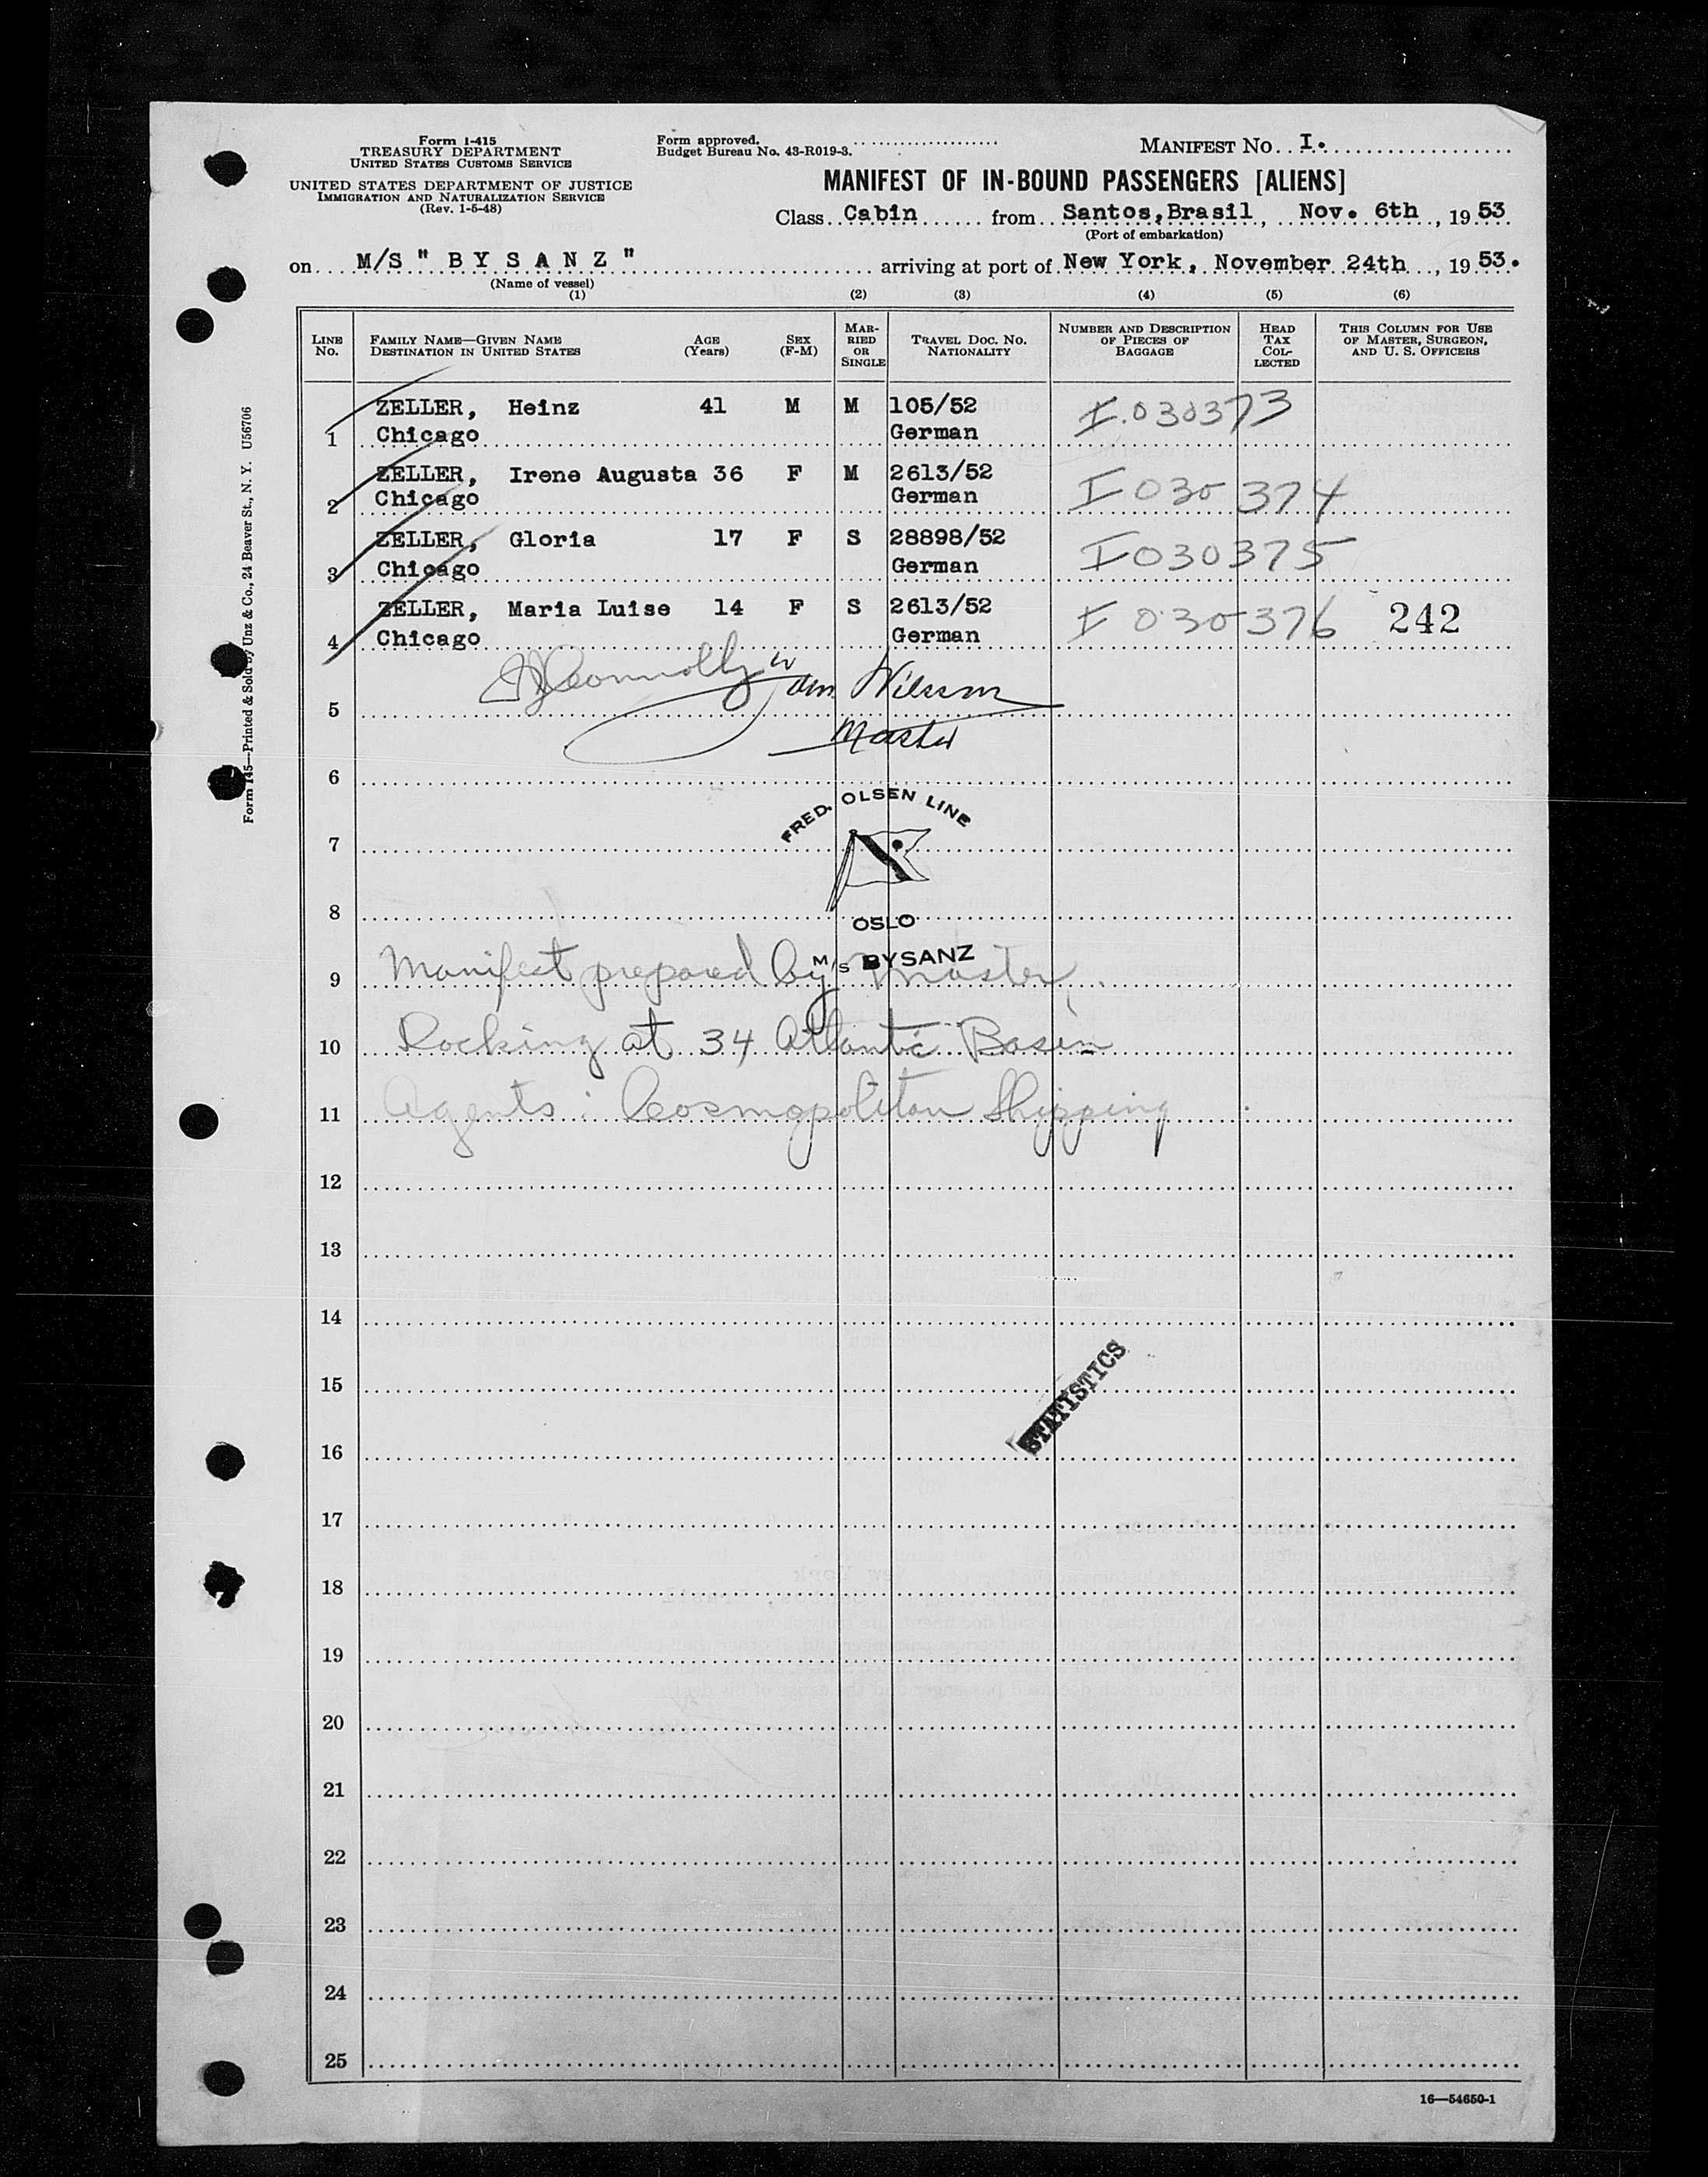 Form I-415
TREASURY DEPARTMENT
UNITED STATES CUSTOMS SERVICE
UNITED STATES DEPARTMENT OF JUSTICE
IMMIGRATION AND NATURALIZATION SERVICE
(Rev. 1-5-48)
Form approved.
Budget Bureau No. 43-R019-3.
MANIFEST No. I.
MANIFEST OF IN-BOUND PASSENGERS [ALIENS]
Class Cabin from Santos, Brasil, Nov. 6th, 1953
(Port of embarkation)
on M/S " B Y S A N Z " arriving at port of New York, November 24th, 1953.
(Name of vessel)
(1) (2) (3) (4) (5) (6)
LINE No. FAMILY NAME—GIVEN NAME DESTINATION IN UNITED STATES AGE (Years) SEX (F-M) MARRIED OR SINGLE TRAVEL DOC. No. NATIONALITY NUMBER AND DESCRIPTION OF PIECES OF BAGGAGE HEAD TAX COLLECTED THIS COLUMN FOR USE OF MASTER, SURGEON, AND U. S. OFFICERS
ZELLER, Heinz 41 M M 105/52 I.030373
1 Chicago German
ZELLER, Irene Augusta 36 F M 2613/52 I 030374
2 Chicago German
ZELLER, Gloria 17 F S 28898/52 I 030375
3 Chicago German
ZELLER, Maria Luise 14 F S 2613/52 I 030376 242
4 Chicago German
Connolly Nilssen
5
Master
6
FRED. OLSEN LINE
7
8
OSLO
M/S BYSANZ
9 Manifest prepared by Master.
10 Docking at 34 Atlantic Basin
11 Agents: Cosmopolitan Shipping
12
13
14
15
STATISTICS
16
17
18
19
20
21
22
23
24
25
16—54650-1
Form 145—Printed & Sold by Unz & Co., 24 Beaver St., N. Y. U56706